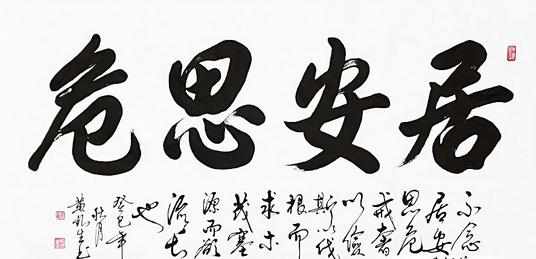 居安思危
不念
居安
思危
戒奢
以儉
斯以伐
根而
求木
茂塞
源而欲
流長
也
癸巳年